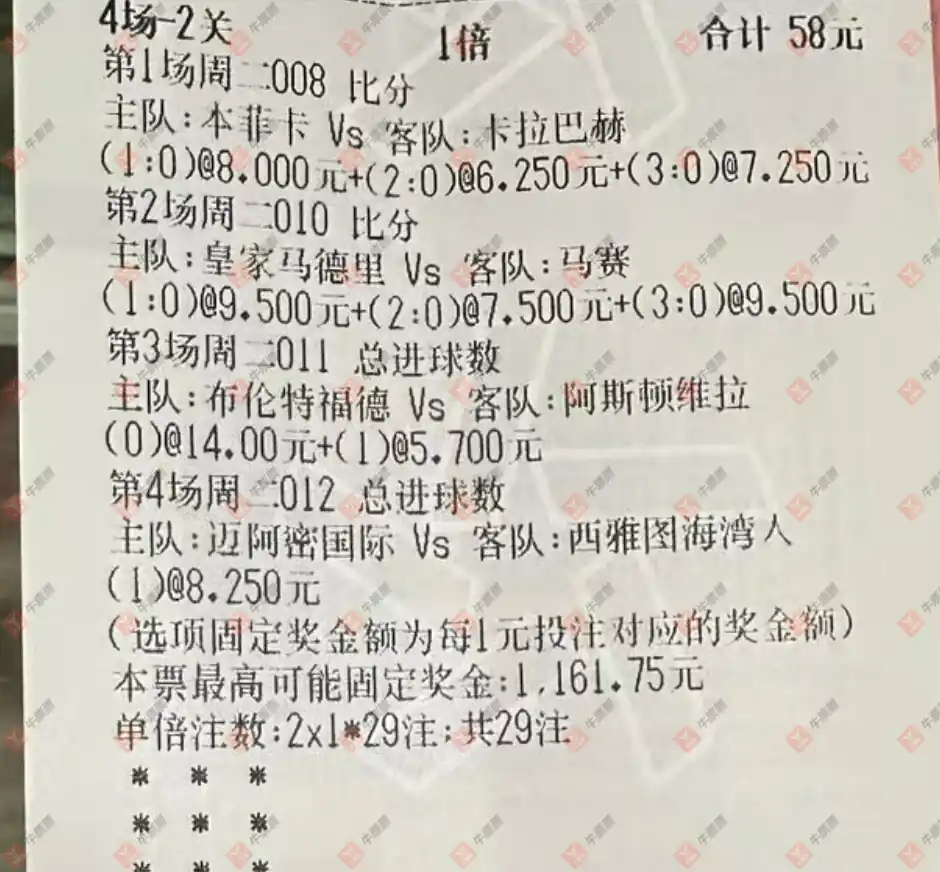 4场-2关 1倍 合计 58元
第1场周二008 比分
主队:本菲卡 Vs 客队:卡拉巴赫
(1:0)@8.000元+(2:0)@6.250元+(3:0)@7.250元
第2场周二010 比分
主队:皇家马德里 Vs 客队:马赛
(1:0)@9.500元+(2:0)@7.500元+(3:0)@9.500元
第3场周二011 总进球数
主队:布伦特福德 Vs 客队:阿斯顿维拉
(0)@14.00元+(1)@5.700元
第4场周二012 总进球数
主队:迈阿密国际 Vs 客队:西雅图海湾人
(1)@8.250元
(选项固定奖金额为每1元投注对应的奖金额)
本票最高可能固定奖金:1,161.75元
单倍注数:2x1*29注;共29注
* * *
* * *
* * *